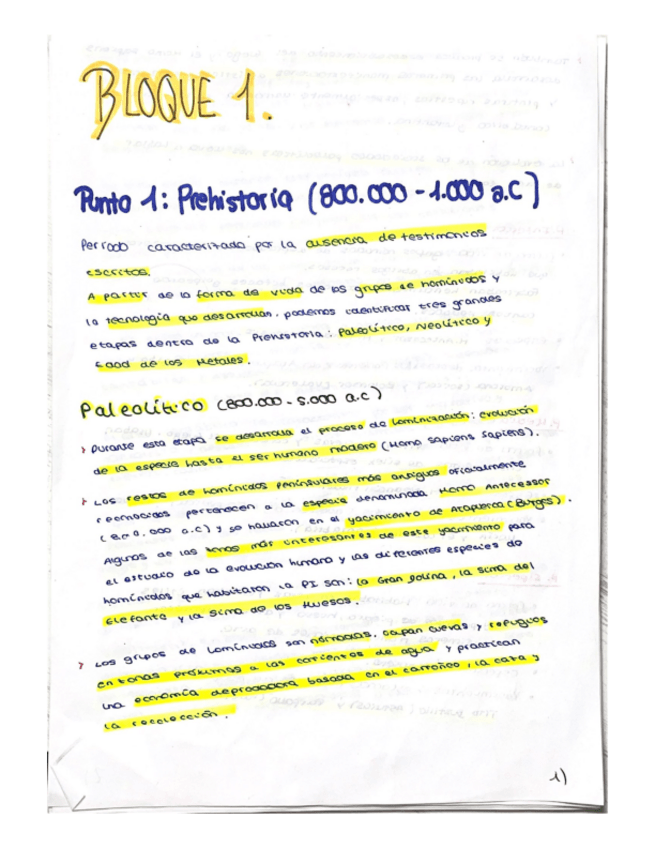 BLOQUE 1.
Punto 1: Prehistoria (800.000 - 1.000 a.C)
Período caracterizado por la ausencia de testimonios
escritos.
A partir de la forma de vida de los grupos de homínidos y
la tecnología que desarrollan, podemos identificar tres grandes
etapas dentro de la Prehistoria: Paleolítico, Neolítico y
Edad de los Metales.
Paleolítico (800.000 - 5.000 a.c)
> Durante esta etapa se desarrolla el proceso de hominización: evolución
de la especie hasta el ser humano modero (Homo sapiens sapiens).
> Los restos de homínidos peninsulares más antiguos oficialmente
reconocidos pertenecen a la especie denominada Homo Antecessor
(800.000 a.c) y se hallaron en el yacimiento de Atapuerca (Burgos).
Algunas de las zonas más interesantes de este yacimiento para
el estudio de la evolución humana y las diferentes especies de
homínidos que habitaron la PI son: la Gran Dolina, la Sima del
Elefante y la Sima de los Huesos.
> Los grupos de homínidos son nómadas, ocupan cuevas y refugios
en zonas próximas a las corrientes de agua y practican
una economía depredadora basada en el carroñeo, la caza y
la recolección.
1)